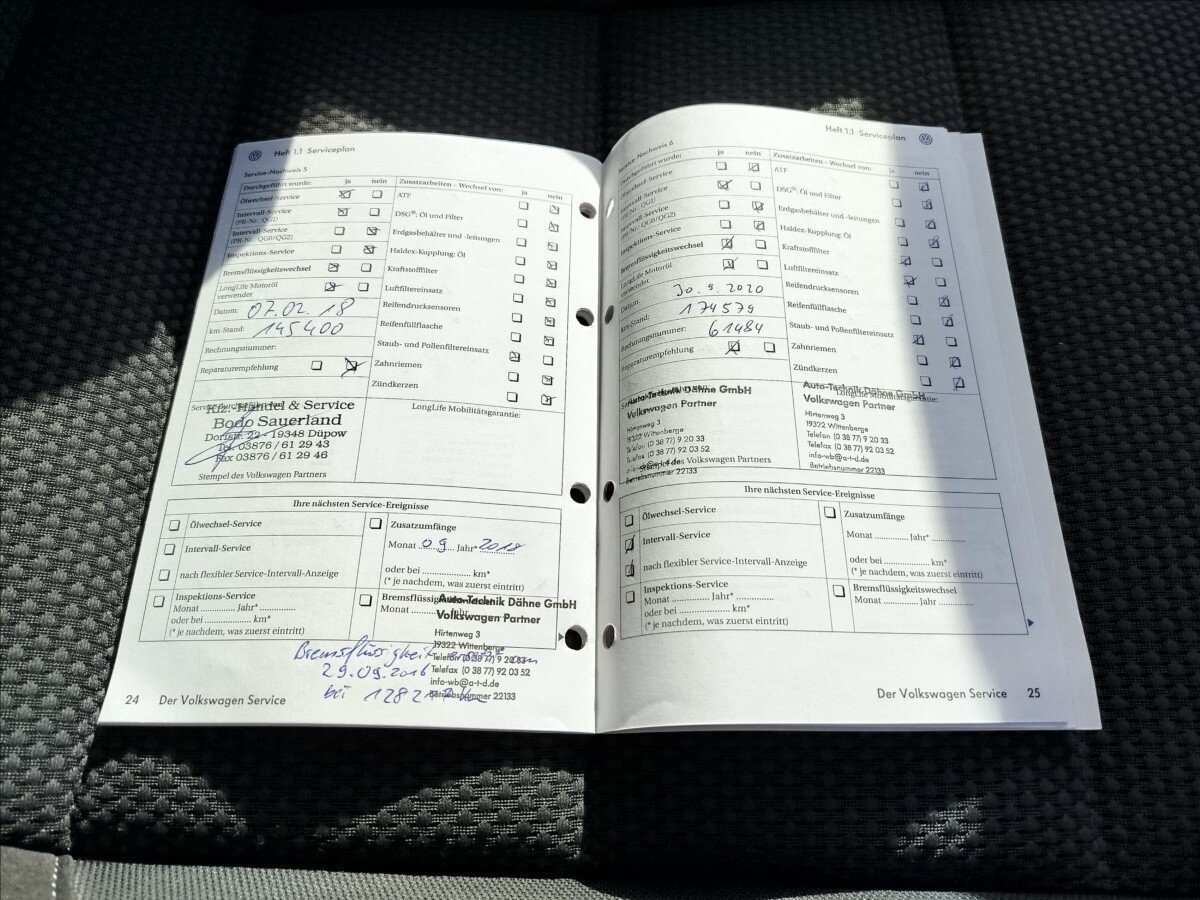 Heft 1.1 Serviceplan
Service-Nachweis 5
Durchgeführt wurde: ja nein
Ölwechsel-Service
Intervall-Service
(PR-Nr.: QG1)
Intervall-Service
(PR-Nr.: QG0/QG2)
Inspektions-Service
Bremsflüssigkeitswechsel
LongLife Motoröl
verwendet
Datum: 07.02.18
km-Stand: 145400
Rechnungsnummer:
Reparaturempfehlung
Zusatzarbeiten – Wechsel von: ja nein
ATF
DSG®: Öl und Filter
Erdgasbehälter und -leitungen
Haldex-Kupplung: Öl
Kraftstofffilter
Luftfiltereinsatz
Reifendrucksensoren
Reifenfüllflasche
Staub- und Pollenfiltereinsatz
Zahnriemen
Zündkerzen
Kfz.-Handel & Service
Bodo Sauerland
Dorfstr. 22 - 19348 Düpow
Tel. 03876 / 61 29 43
Fax 03876 / 61 29 46
Stempel des Volkswagen Partners
LongLife Mobilitätsgarantie:
Ihre nächsten Service-Ereignisse
Ölwechsel-Service
Intervall-Service
nach flexibler Service-Intervall-Anzeige
Inspektions-Service
Monat ........... Jahr* ............
oder bei ..................... km*
(* je nachdem, was zuerst eintritt)
Zusatzumfänge
Monat 09 Jahr* 2018
oder bei ..................... km*
(* je nachdem, was zuerst eintritt)
Bremsflüssigkeitswechsel
Monat ........... Jahr
Auto-Technik Dähne GmbH
Volkswagen Partner
Hirtenweg 3
19322 Wittenberge
Telefon (0 38 77) 9 20 33
Telefax (0 38 77) 92 03 52
info-wb@a-t-d.de
Betriebsnummer 22133
Bremsflüssigkeit ersetzt am
29.09.2016
bei
24 Der Volkswagen Service
Heft 1.1 Serviceplan
Service-Nachweis 6
Durchgeführt wurde: ja nein
Ölwechsel-Service
Intervall-Service
(PR-Nr.: QG1)
Intervall-Service
(PR-Nr.: QG0/QG2)
Inspektions-Service
Bremsflüssigkeitswechsel
LongLife Motoröl
verwendet
Datum: 30.9.2020
km-Stand: 174579
Rechnungsnummer: 61484
Reparaturempfehlung
Zusatzarbeiten – Wechsel von: ja nein
ATF
DSG®: Öl und Filter
Erdgasbehälter und -leitungen
Haldex-Kupplung: Öl
Kraftstofffilter
Luftfiltereinsatz
Reifendrucksensoren
Reifenfüllflasche
Staub- und Pollenfiltereinsatz
Zahnriemen
Zündkerzen
Auto-Technik Dähne GmbH
Volkswagen Partner
Hirtenweg 3
19322 Wittenberge
Telefon (0 38 77) 9 20 33
Telefax (0 38 77) 92 03 52
Stempel des Volkswagen Partners
Betriebsnummer 22133
LongLife Mobilitätsgarantie:
Auto-Technik Dähne GmbH
Volkswagen Partner
Hirtenweg 3
19322 Wittenberge
Telefon (0 38 77) 9 20 33
Telefax (0 38 77) 92 03 52
info-wb@a-t-d.de
Betriebsnummer 22133
Ihre nächsten Service-Ereignisse
Ölwechsel-Service
Intervall-Service
nach flexibler Service-Intervall-Anzeige
Inspektions-Service
Monat ........... Jahr* ............
oder bei ..................... km*
(* je nachdem, was zuerst eintritt)
Zusatzumfänge
Monat ........... Jahr* ............
oder bei ..................... km*
(* je nachdem, was zuerst eintritt)
Bremsflüssigkeitswechsel
Monat ........... Jahr ............
Der Volkswagen Service 25